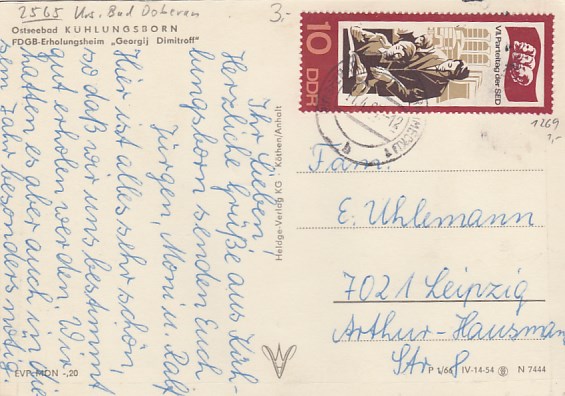 2565 Krs. Bad Doberan
3,-
Ostseebad KÜHLUNGSBORN
FDGB-Erholungsheim „Georgij Dimitroff"
Ihr Lieben!
Herzliche Grüße aus Küh-
lungsborn senden Euch
Jürgen, Moni u. Ralf
Hier ist alles sehr schön,
so daß wir uns bestimmt
gut erholen werden. Wir
hatten es aber auch in die
sem Jahr besonders nötig.
EVP MDN -,20
Heldge-Verlag KG Köthen/Anhalt
10
DDR
VII. Parteitag der SED
1269
3,-
Fam.
E. Uhlemann
7021 Leipzig
Arthur-Hausmann
Str 8
P 1/66 IV-14-54 N 7444